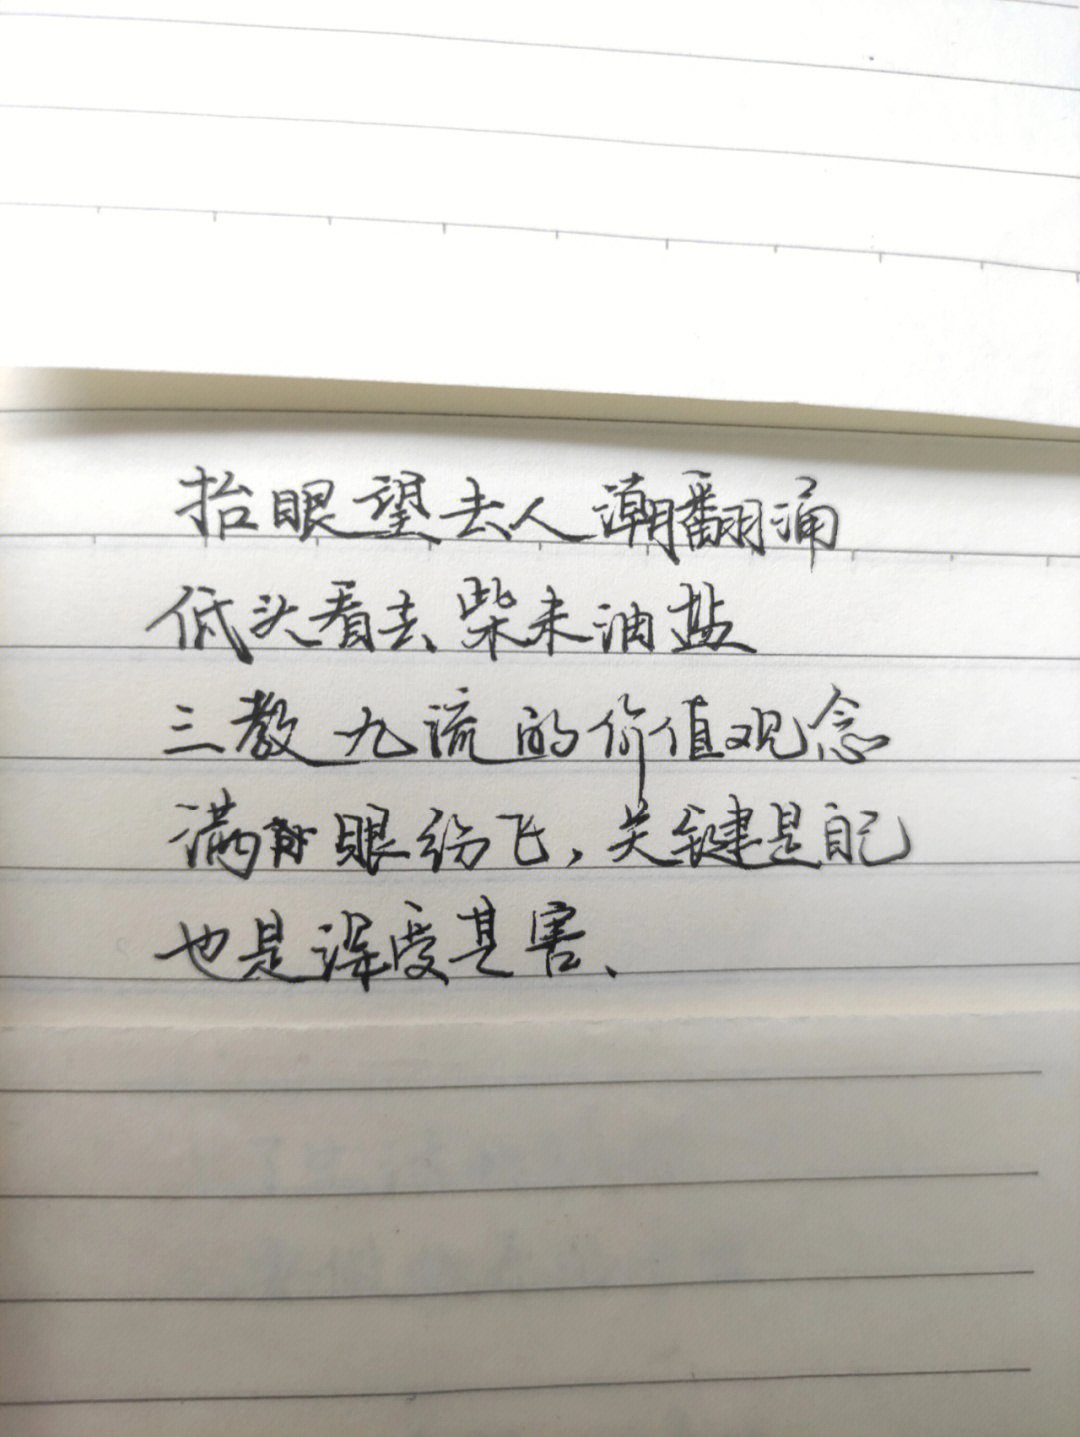 抬眼望去人潮翻涌
低头看去柴米油盐
三教九流的价值观念
满眼纷飞，关键是自己
也是深受其害、